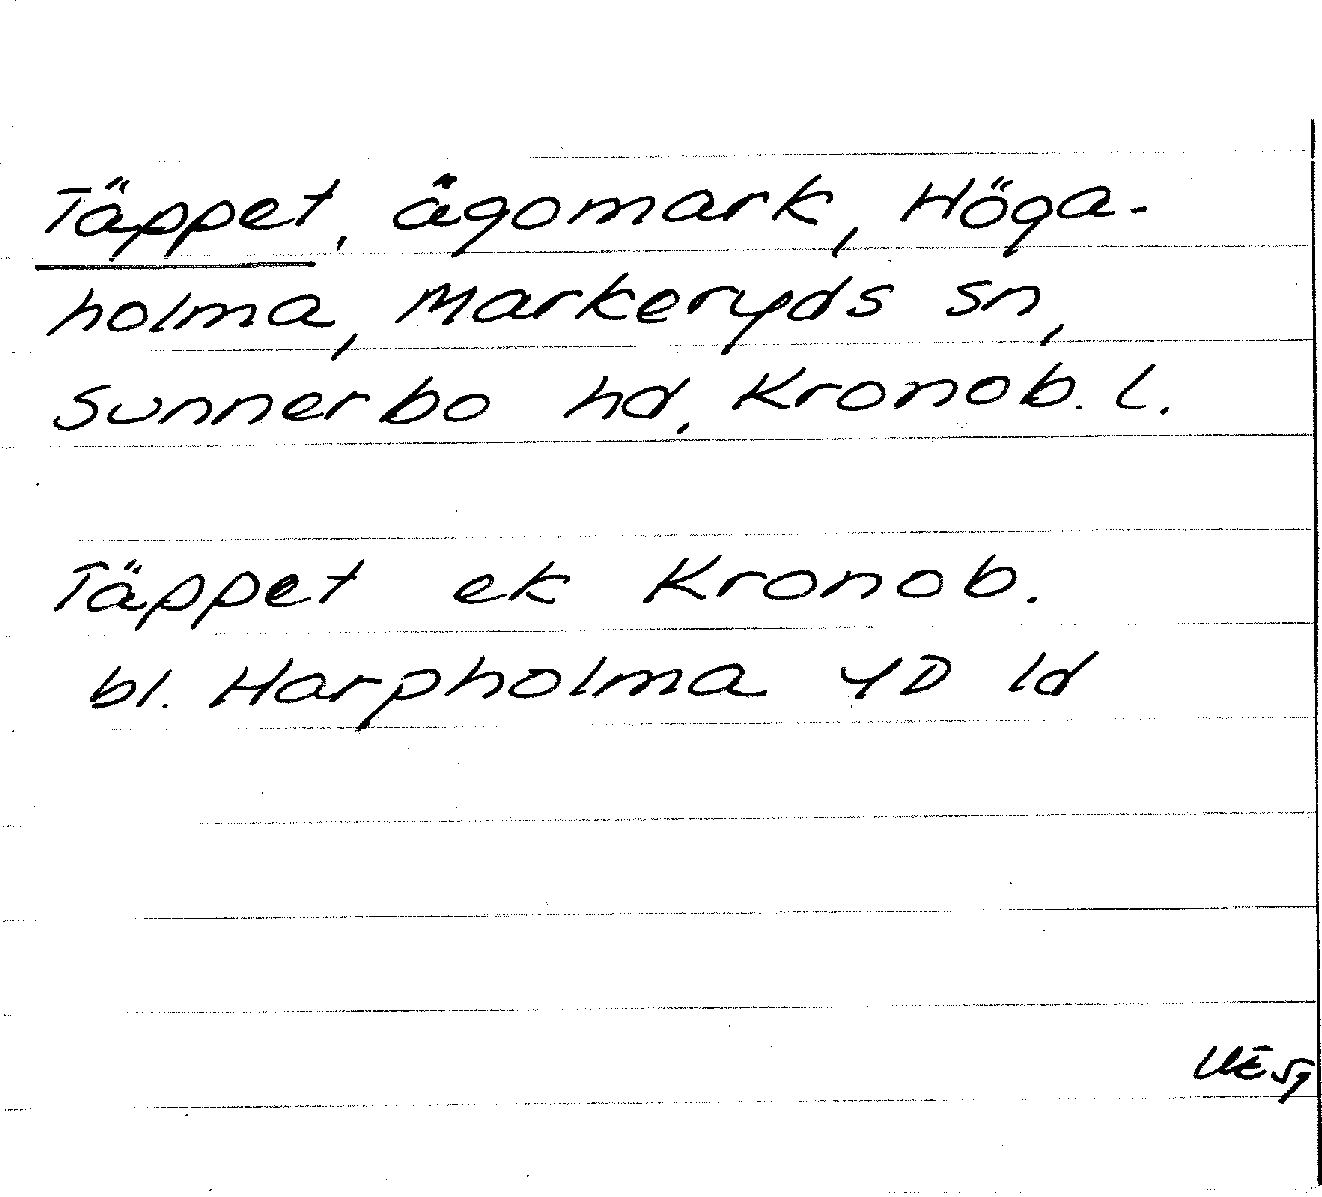 Täppet, ägomark, Höga-
holma, Markeryds sn,
Sunnerbo hd, Kronob. l.
Täppet ek Kronob.
bl. Harpholma YD ld